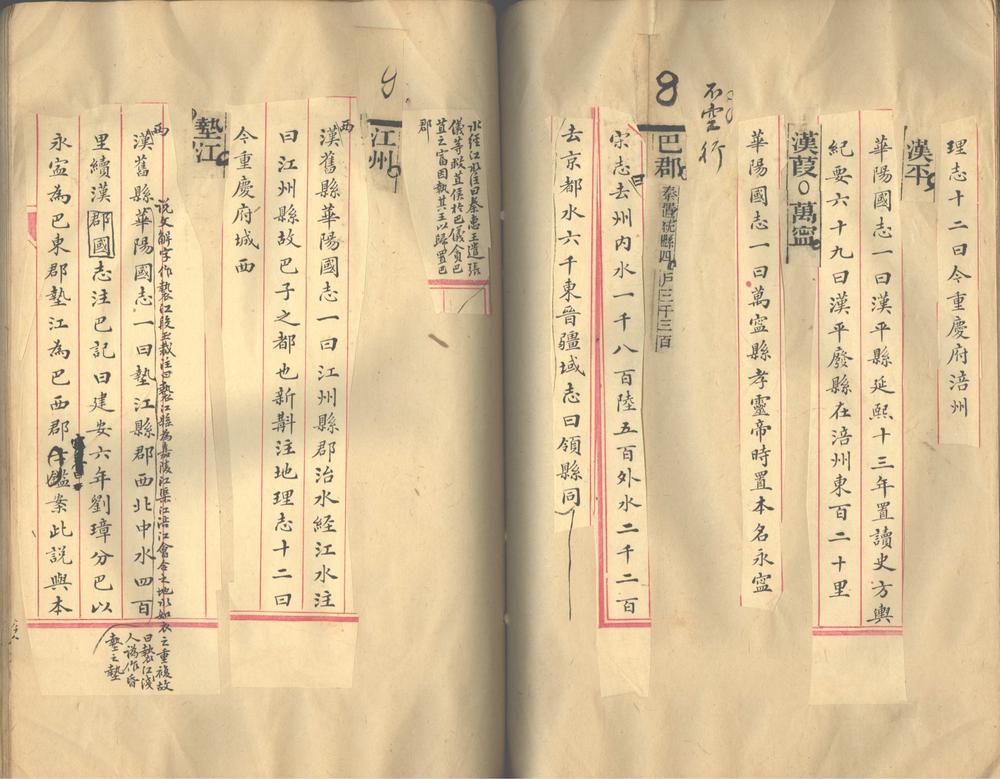 理志十二曰今重慶府涪州
漢平
華陽國志一曰漢平縣延熙十三年置讀史方輿
紀要六十九曰漢平廢縣在涪州東百二十里
漢葭○萬寍
華陽國志一曰萬寍縣孝靈帝時置本名永寍
不空行
8
巴郡 秦置統縣四戶三千三百
宋志曰去州内水一千八百陸五百外水二千二百
去京都水六千東晉疆域志曰領縣同
水經江水注曰秦惠王遣張
儀等救苴侯於巴儀貪巴
苴之富因執其王以歸置巴
郡
9
江州
西漢舊縣華陽國志一曰江州縣郡治水經江水注
曰江州縣故巴子之都也新斠注地理志十二曰
今重慶府城西
墊江
说文解字作褺江段玉裁注曰褺江縣為嘉陵江渠江涪江會合之地水如衣之重複故
曰褺江淺
人譌作昏
墊之墊
西漢舊縣華陽國志一曰墊江縣郡西北中水四百
里續漢郡國志注巴記曰建安六年劉璋分巴以
永寍為巴東郡墊江為巴西郡鑑案此説與本